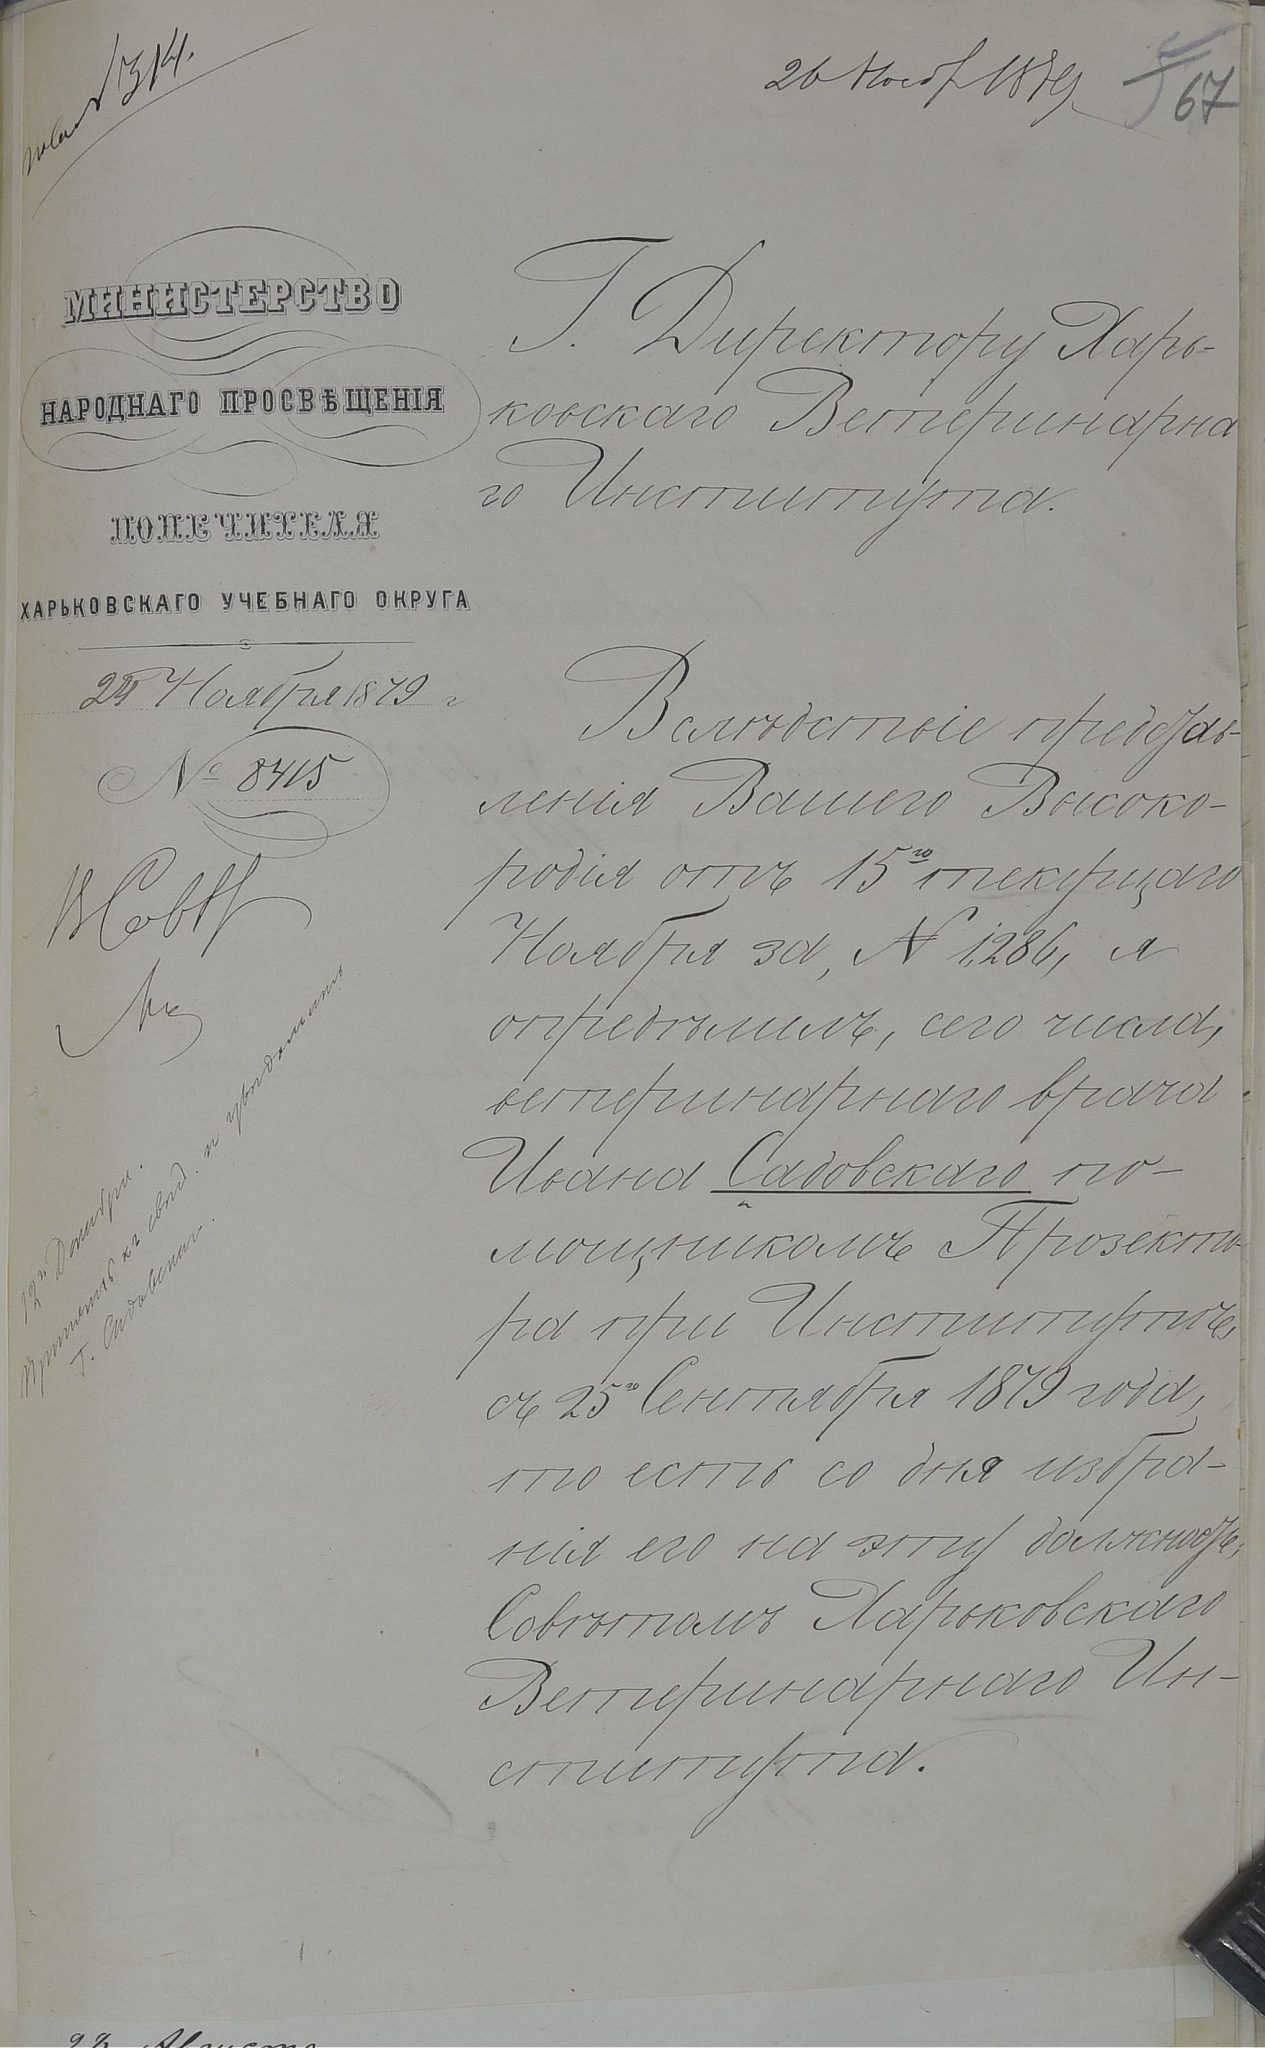 № 314.
26 Нояб 1879
67
МИНИСТЕРСТВО
НАРОДНАГО ПРОСВѢЩЕНІЯ
ПОПЕЧИТЕЛЯ
ХАРЬКОВСКАГО УЧЕБНАГО ОКРУГА
Ноября 1879 г
№ 8415
Въ Совѣтъ
12 Декабря.
Принять къ свѣд. и увѣдомить
г. Садовскаго.
Г. Директору Харь-
ковскаго Ветеринарна
го Института.
Вслѣдствіе представ-
ленія Вашего Высоко-
родія отъ 15го текущаго
Ноября за, № 1286, я
опредѣлилъ, сего числа,
ветеринарнаго врача
Ивана Садовскаго по-
мощникомъ Прозекто-
ра при Институтѣ,
съ 25го Сентября 1879 года,
то есть со дня избра-
нія его на эту должность,
Совѣтомъ Харьковскаго
Ветеринарнаго Ин-
ститута.
Августа